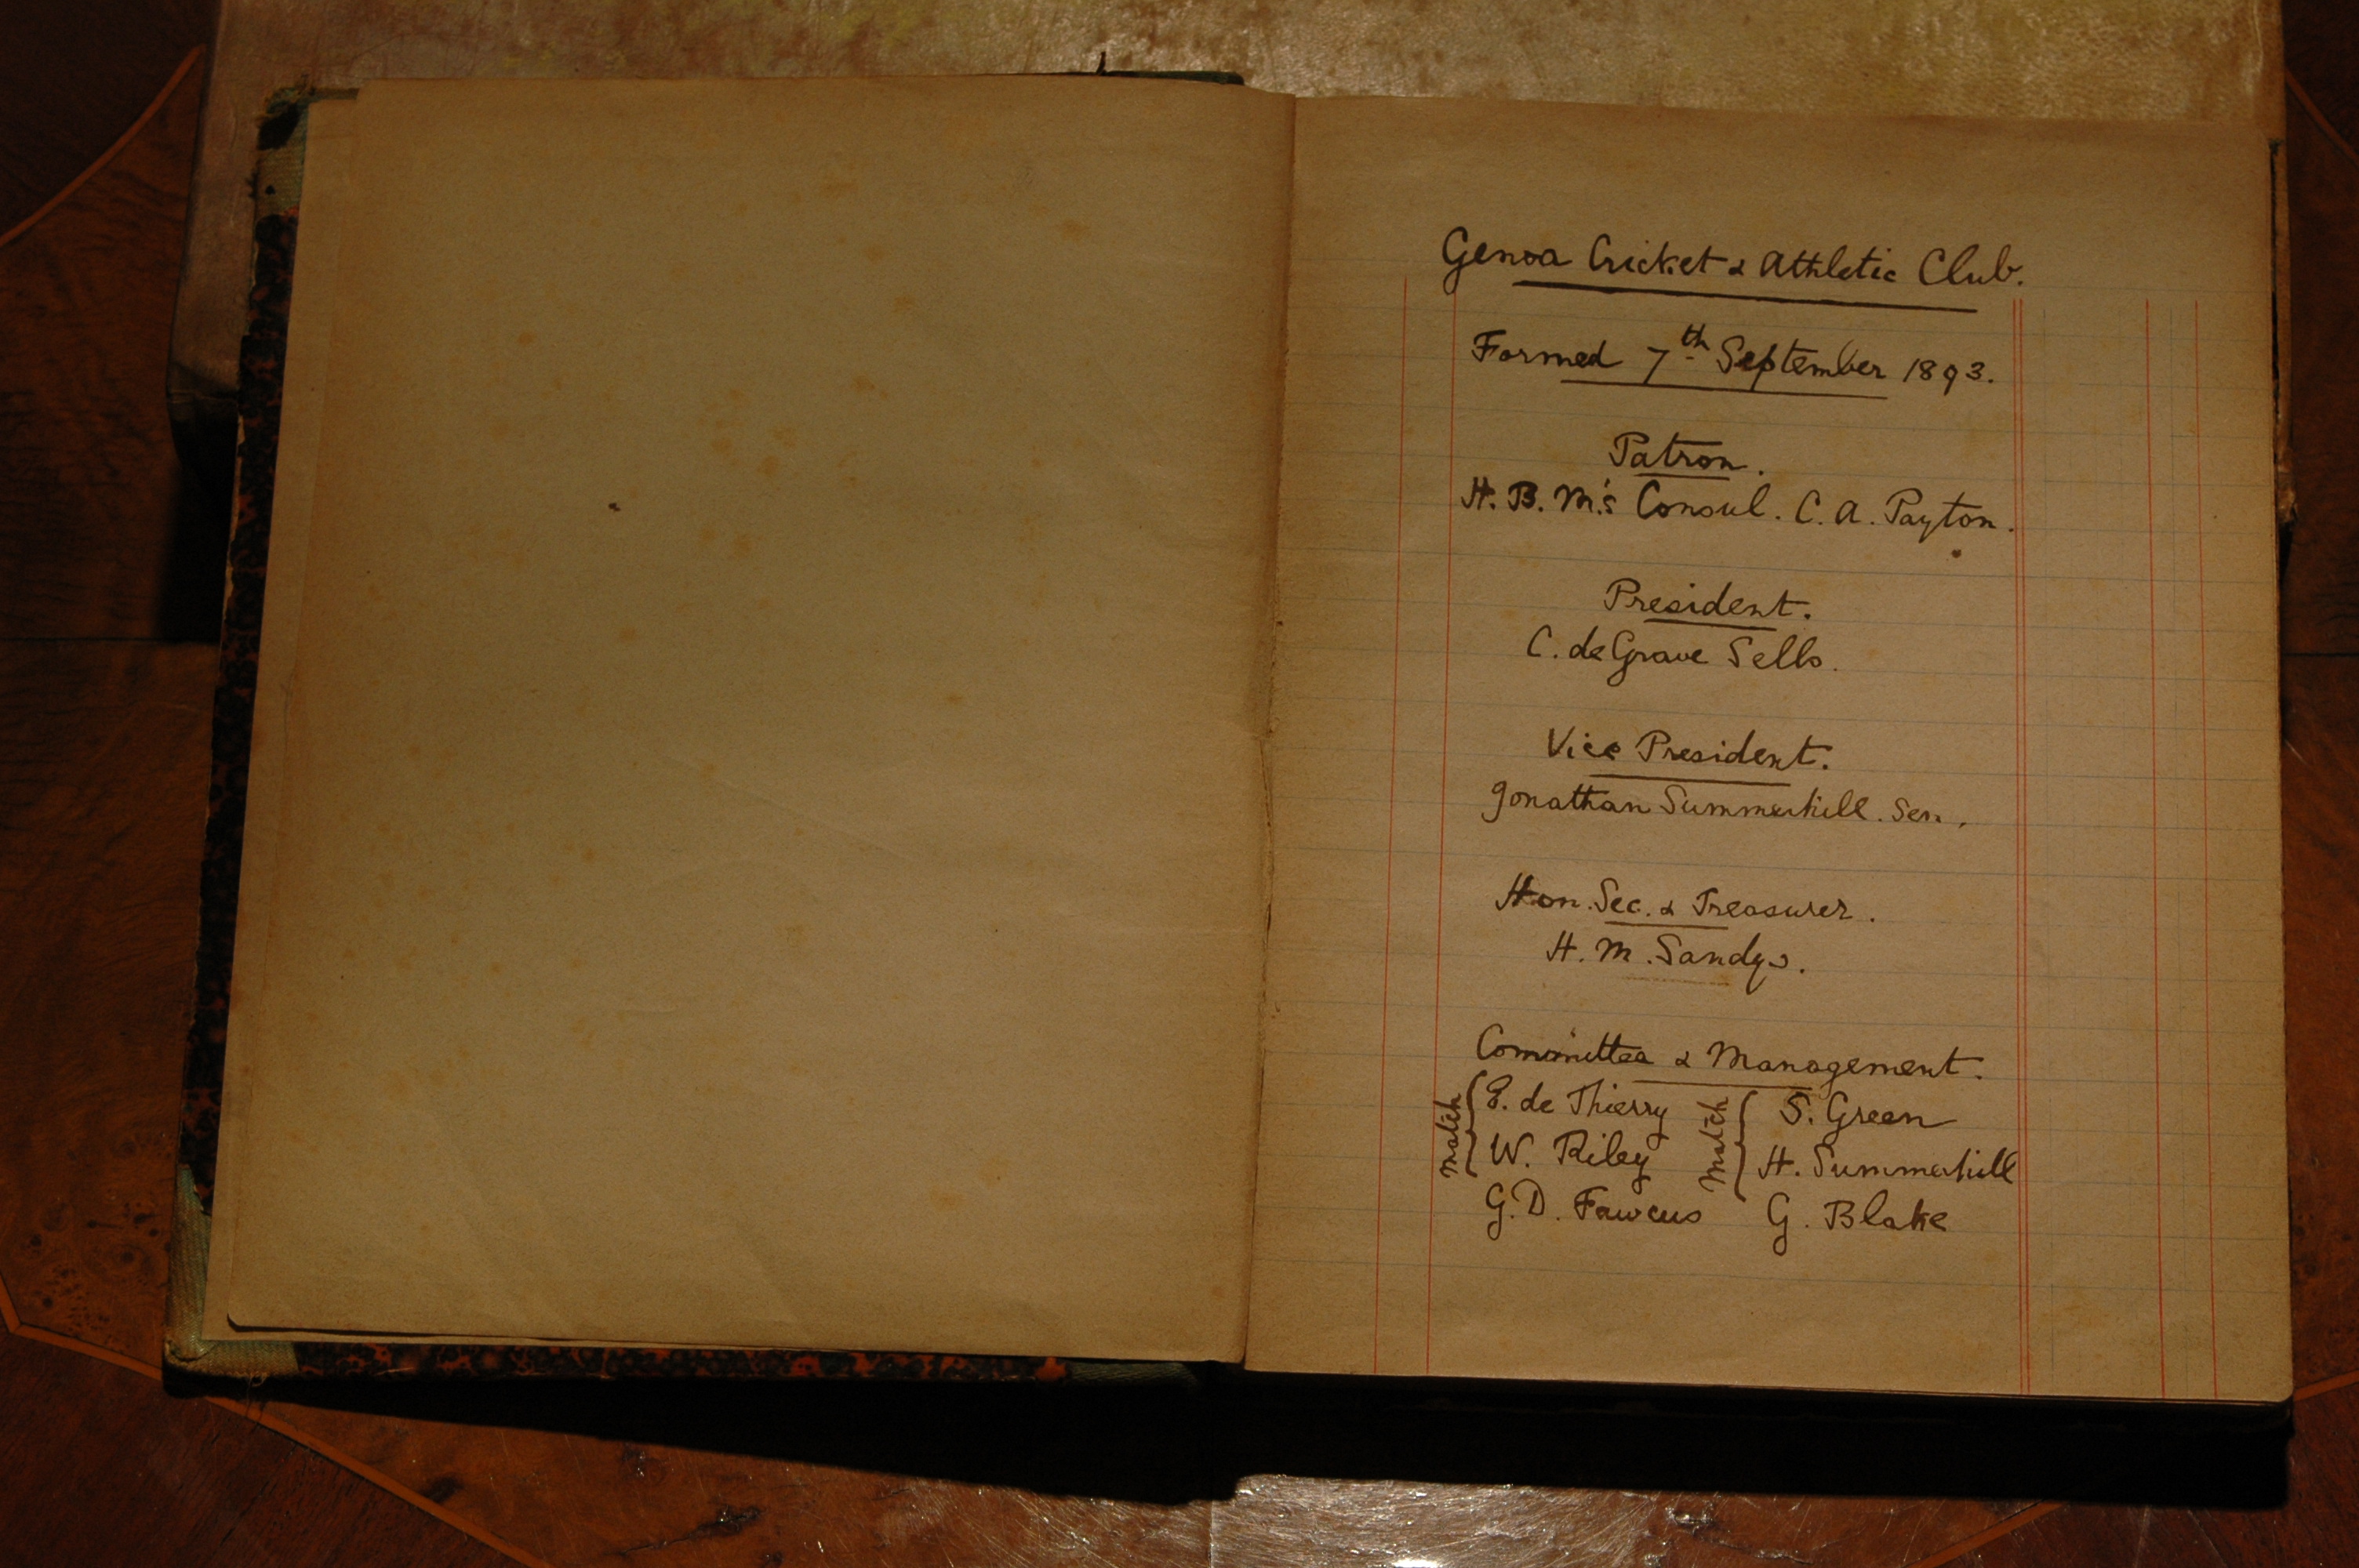 Genoa Cricket & Athletic Club.
Formed 7th September 1893.
Patron.
H. B. M.'s Consul. C. A. Payton.
President.
C. de Grave Sells.
Vice President.
Jonathan Summerhill. Sen.
Hon. Sec. & Treasurer.
H. M. Sandys.
Committee & Management.
match { E. de Thierry match { S. Green
W. Riley H. Summerhill
G. D. Fawcus G. Blake